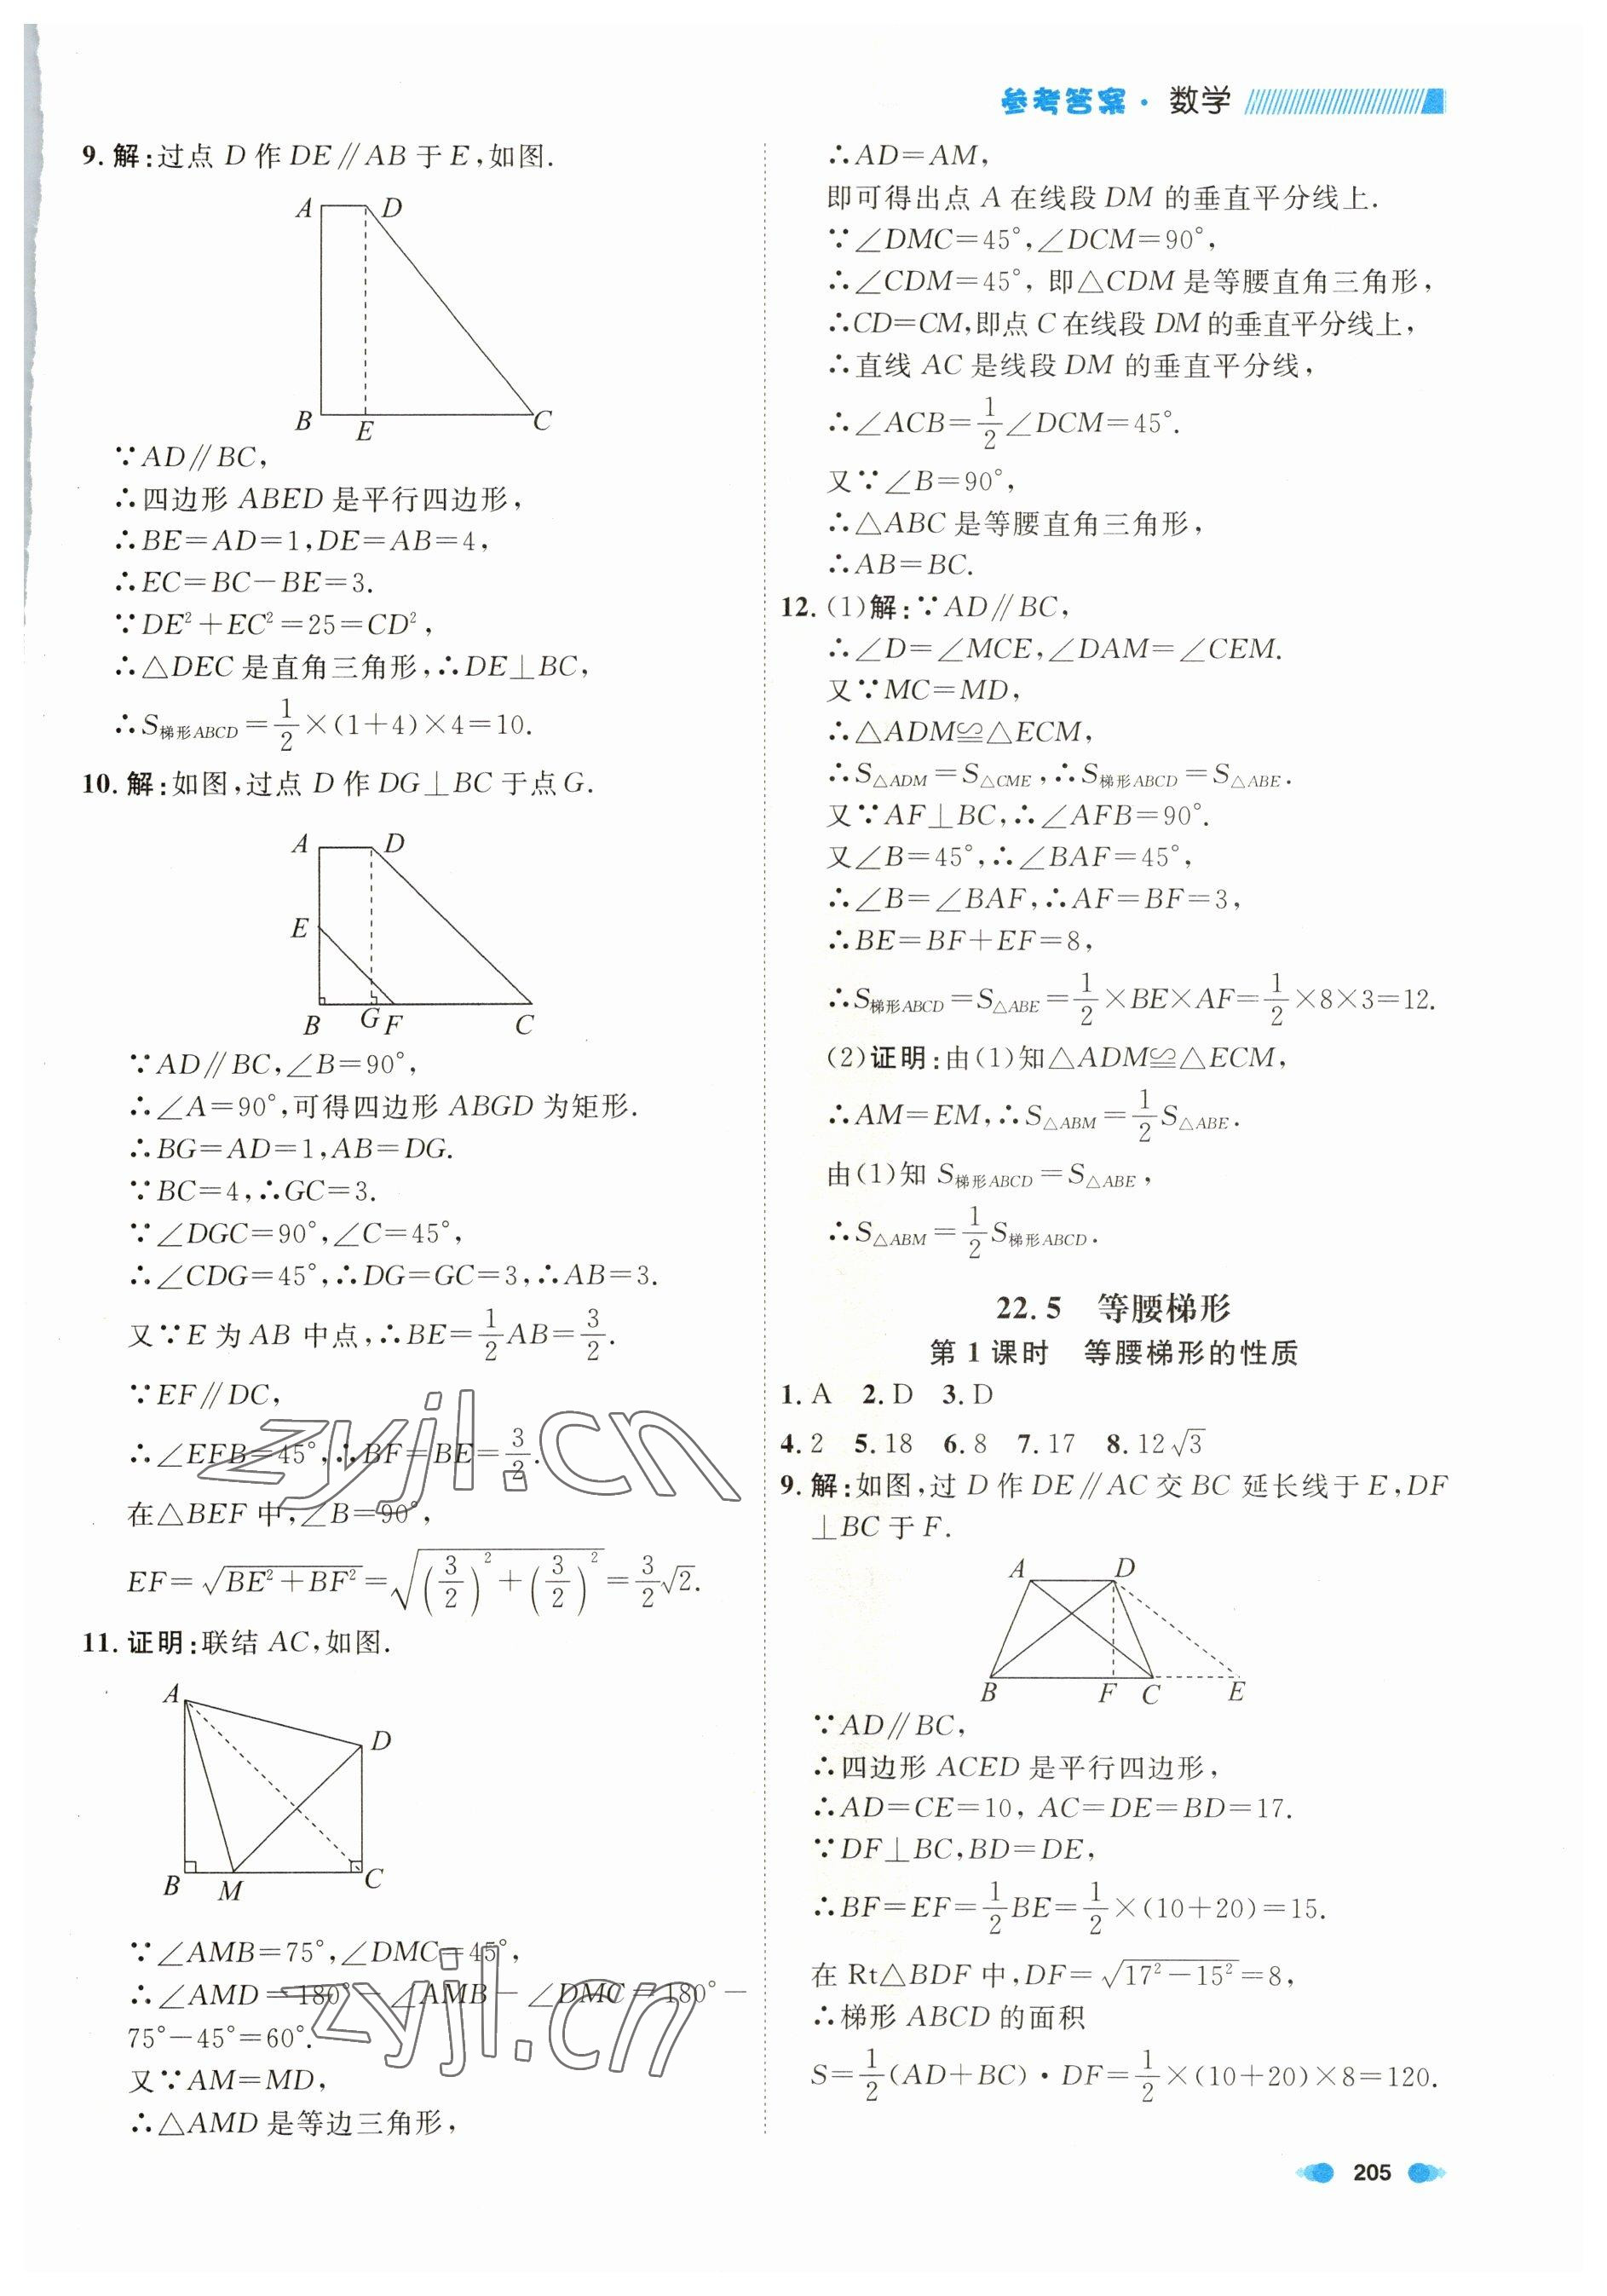 参考答案·数学
9. 解:过点 D 作 DE∥AB 于 E,如图.
A D
B E C
∵AD∥BC,
∴四边形 ABED 是平行四边形,
∴BE=AD=1,DE=AB=4,
∴EC=BC-BE=3.
∵DE²+EC²=25=CD²,
∴△DEC 是直角三角形,∴DE⊥BC,
∴S梯形ABCD=1/2×(1+4)×4=10.
10. 解:如图,过点 D 作 DG⊥BC 于点 G.
A D
E
B G F C
∵AD∥BC,∠B=90°,
∴∠A=90°,可得四边形 ABGD 为矩形.
∴BG=AD=1,AB=DG.
∵BC=4,∴GC=3.
∵∠DGC=90°,∠C=45°,
∴∠CDG=45°,∴DG=GC=3,∴AB=3.
又∵E 为 AB 中点,∴BE=1/2AB=3/2.
∵EF∥DC,
∴∠EFB=45°,∴BF=BE=3/2.
在△BEF 中,∠B=90°,
EF=√(BE²+BF²)=√((3/2)²+(3/2)²)=3/2√2.
11. 证明:联结 AC,如图.
A
D
B M C
∵∠AMB=75°,∠DMC=45°,
∴∠AMD=180°-∠AMB-∠DMC=180°-
75°-45°=60°.
又∵AM=MD,
∴△AMD 是等边三角形,
∴AD=AM,
即可得出点 A 在线段 DM 的垂直平分线上.
∵∠DMC=45°,∠DCM=90°,
∴∠CDM=45°, 即△CDM 是等腰直角三角形,
∴CD=CM,即点 C 在线段 DM 的垂直平分线上,
∴直线 AC 是线段 DM 的垂直平分线,
∴∠ACB=1/2∠DCM=45°.
又∵∠B=90°,
∴△ABC 是等腰直角三角形,
∴AB=BC.
12. (1)解:∵AD∥BC,
∴∠D=∠MCE,∠DAM=∠CEM.
又∵MC=MD,
∴△ADM≌△ECM,
∴S△ADM=S△CME,∴S梯形ABCD=S△ABE.
又∵AF⊥BC,∴∠AFB=90°.
又∠B=45°,∴∠BAF=45°,
∴∠B=∠BAF,∴AF=BF=3,
∴BE=BF+EF=8,
∴S梯形ABCD=S△ABE=1/2×BE×AF=1/2×8×3=12.
(2)证明:由(1)知△ADM≌△ECM,
∴AM=EM,∴S△ABM=1/2S△ABE.
由(1)知 S梯形ABCD=S△ABE,
∴S△ABM=1/2S梯形ABCD.
22.5 等腰梯形
第 1 课时 等腰梯形的性质
1. A 2. D 3. D
4. 2 5. 18 6. 8 7. 17 8. 12√3
9. 解:如图,过 D 作 DE∥AC 交 BC 延长线于 E,DF
⊥BC 于 F.
A D
B F C E
∵AD∥BC,
∴四边形 ACED 是平行四边形,
∴AD=CE=10, AC=DE=BD=17.
∵DF⊥BC,BD=DE,
∴BF=EF=1/2BE=1/2×(10+20)=15.
在 Rt△BDF 中,DF=√(17²-15²)=8,
∴梯形 ABCD 的面积
S=1/2(AD+BC)·DF=1/2×(10+20)×8=120.
205
zyjl.cn
zyjl.cn